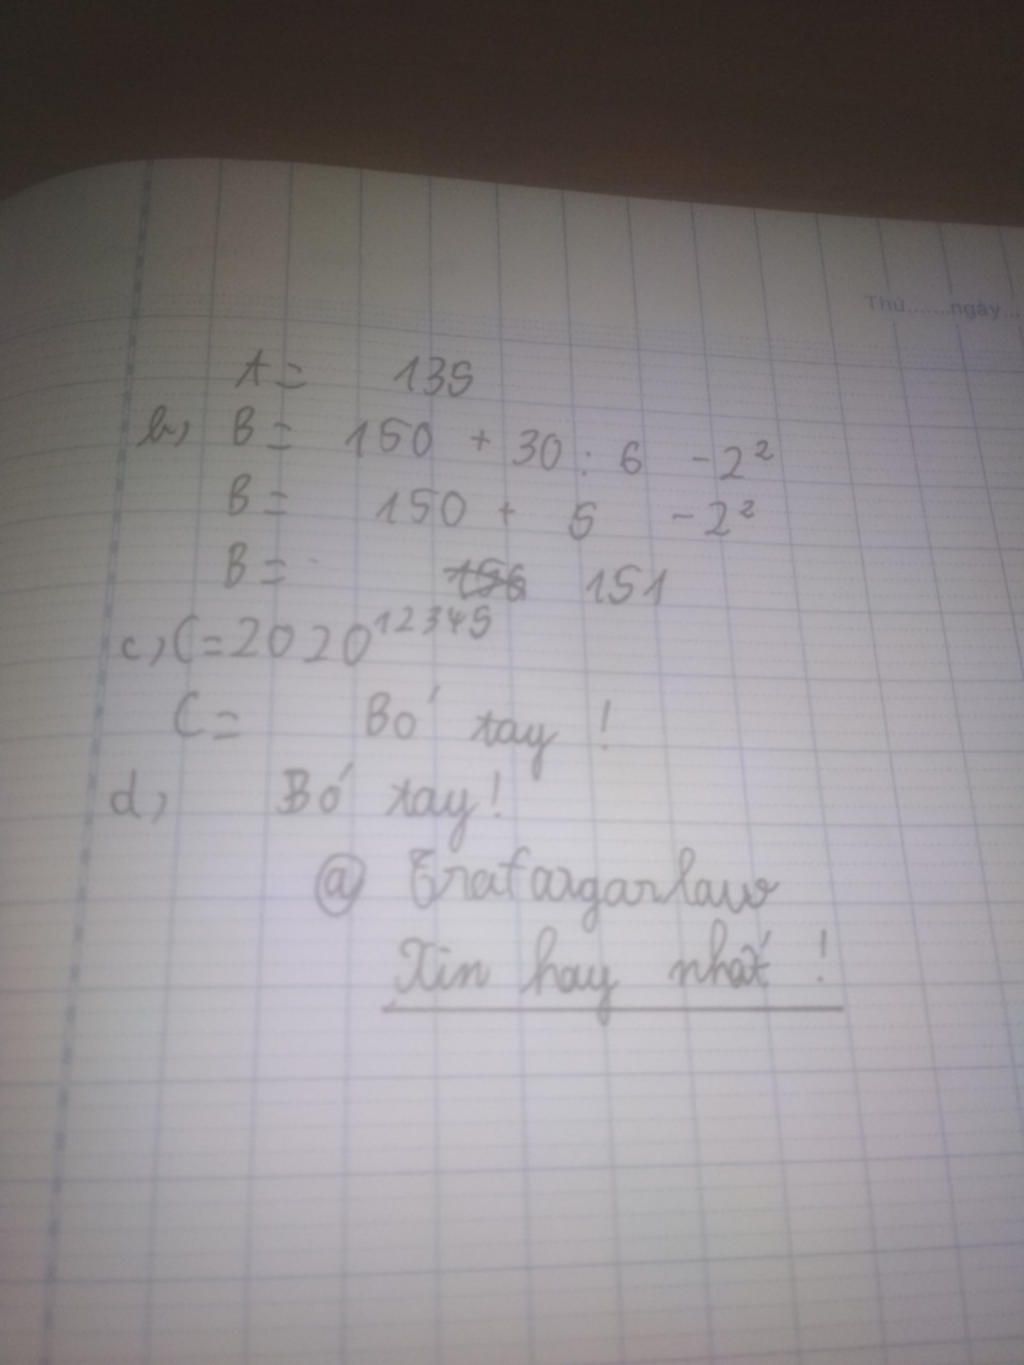 Thứ.......ngày...
A = 135
b, B = 150 + 30 : 6 - 2²
B = 150 + 5 - 2²
B = 156 151
c, C = 2020¹²³⁴⁵
C = Bó tay !
d, Bó tay !
Xin hay nhất !